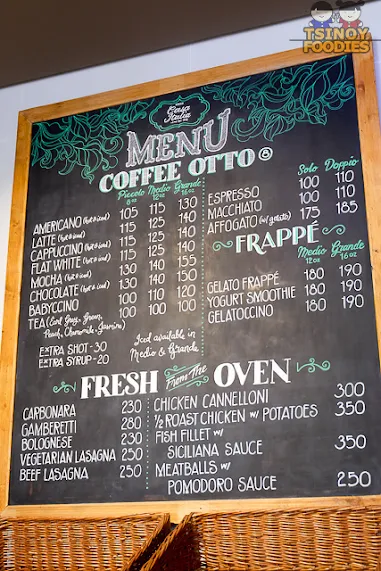 TSINOY
FOODIES
Casa
Italia
MENU
COFFEE OTTO 8
Piccolo Medio Grande
8 oz 12 oz 16 oz
AMERICANO (hot & iced) 105 115 130
LATTE (hot & iced) 115 125 140
CAPPUCCINO (hot & iced) 115 125 140
FLAT WHITE (hot & iced) 115 125 140
MOCHA (hot & iced) 130 140 155
CHOCOLATE (hot & iced) 130 140 150
BABYCCINO 100 110 120
TEA (Earl Grey, Green, 100 100 100
Peach, Chamomile, Jasmine)
EXTRA SHOT - 30
EXTRA SYRUP - 20
Iced available in
Medio & Grande
Solo Doppio
ESPRESSO 100 110
MACCHIATO 100 110
AFFOGATO (w/ gelato) 175 185
FRAPPÉ
Medio Grande
12 oz 16 oz
GELATO FRAPPÉ 180 190
YOGURT SMOOTHIE 180 190
GELATOCCINO 180 190
FRESH From The OVEN
CARBONARA 230
GAMBERETTI 280
BOLOGNESE 230
VEGETARIAN LASAGNA 250
BEEF LASAGNA 250
CHICKEN CANNELLONI 300
1/2 ROAST CHICKEN w/ POTATOES 350
FISH FILLET w/
SICILIANA SAUCE 350
MEATBALLS w/
POMODORO SAUCE 250